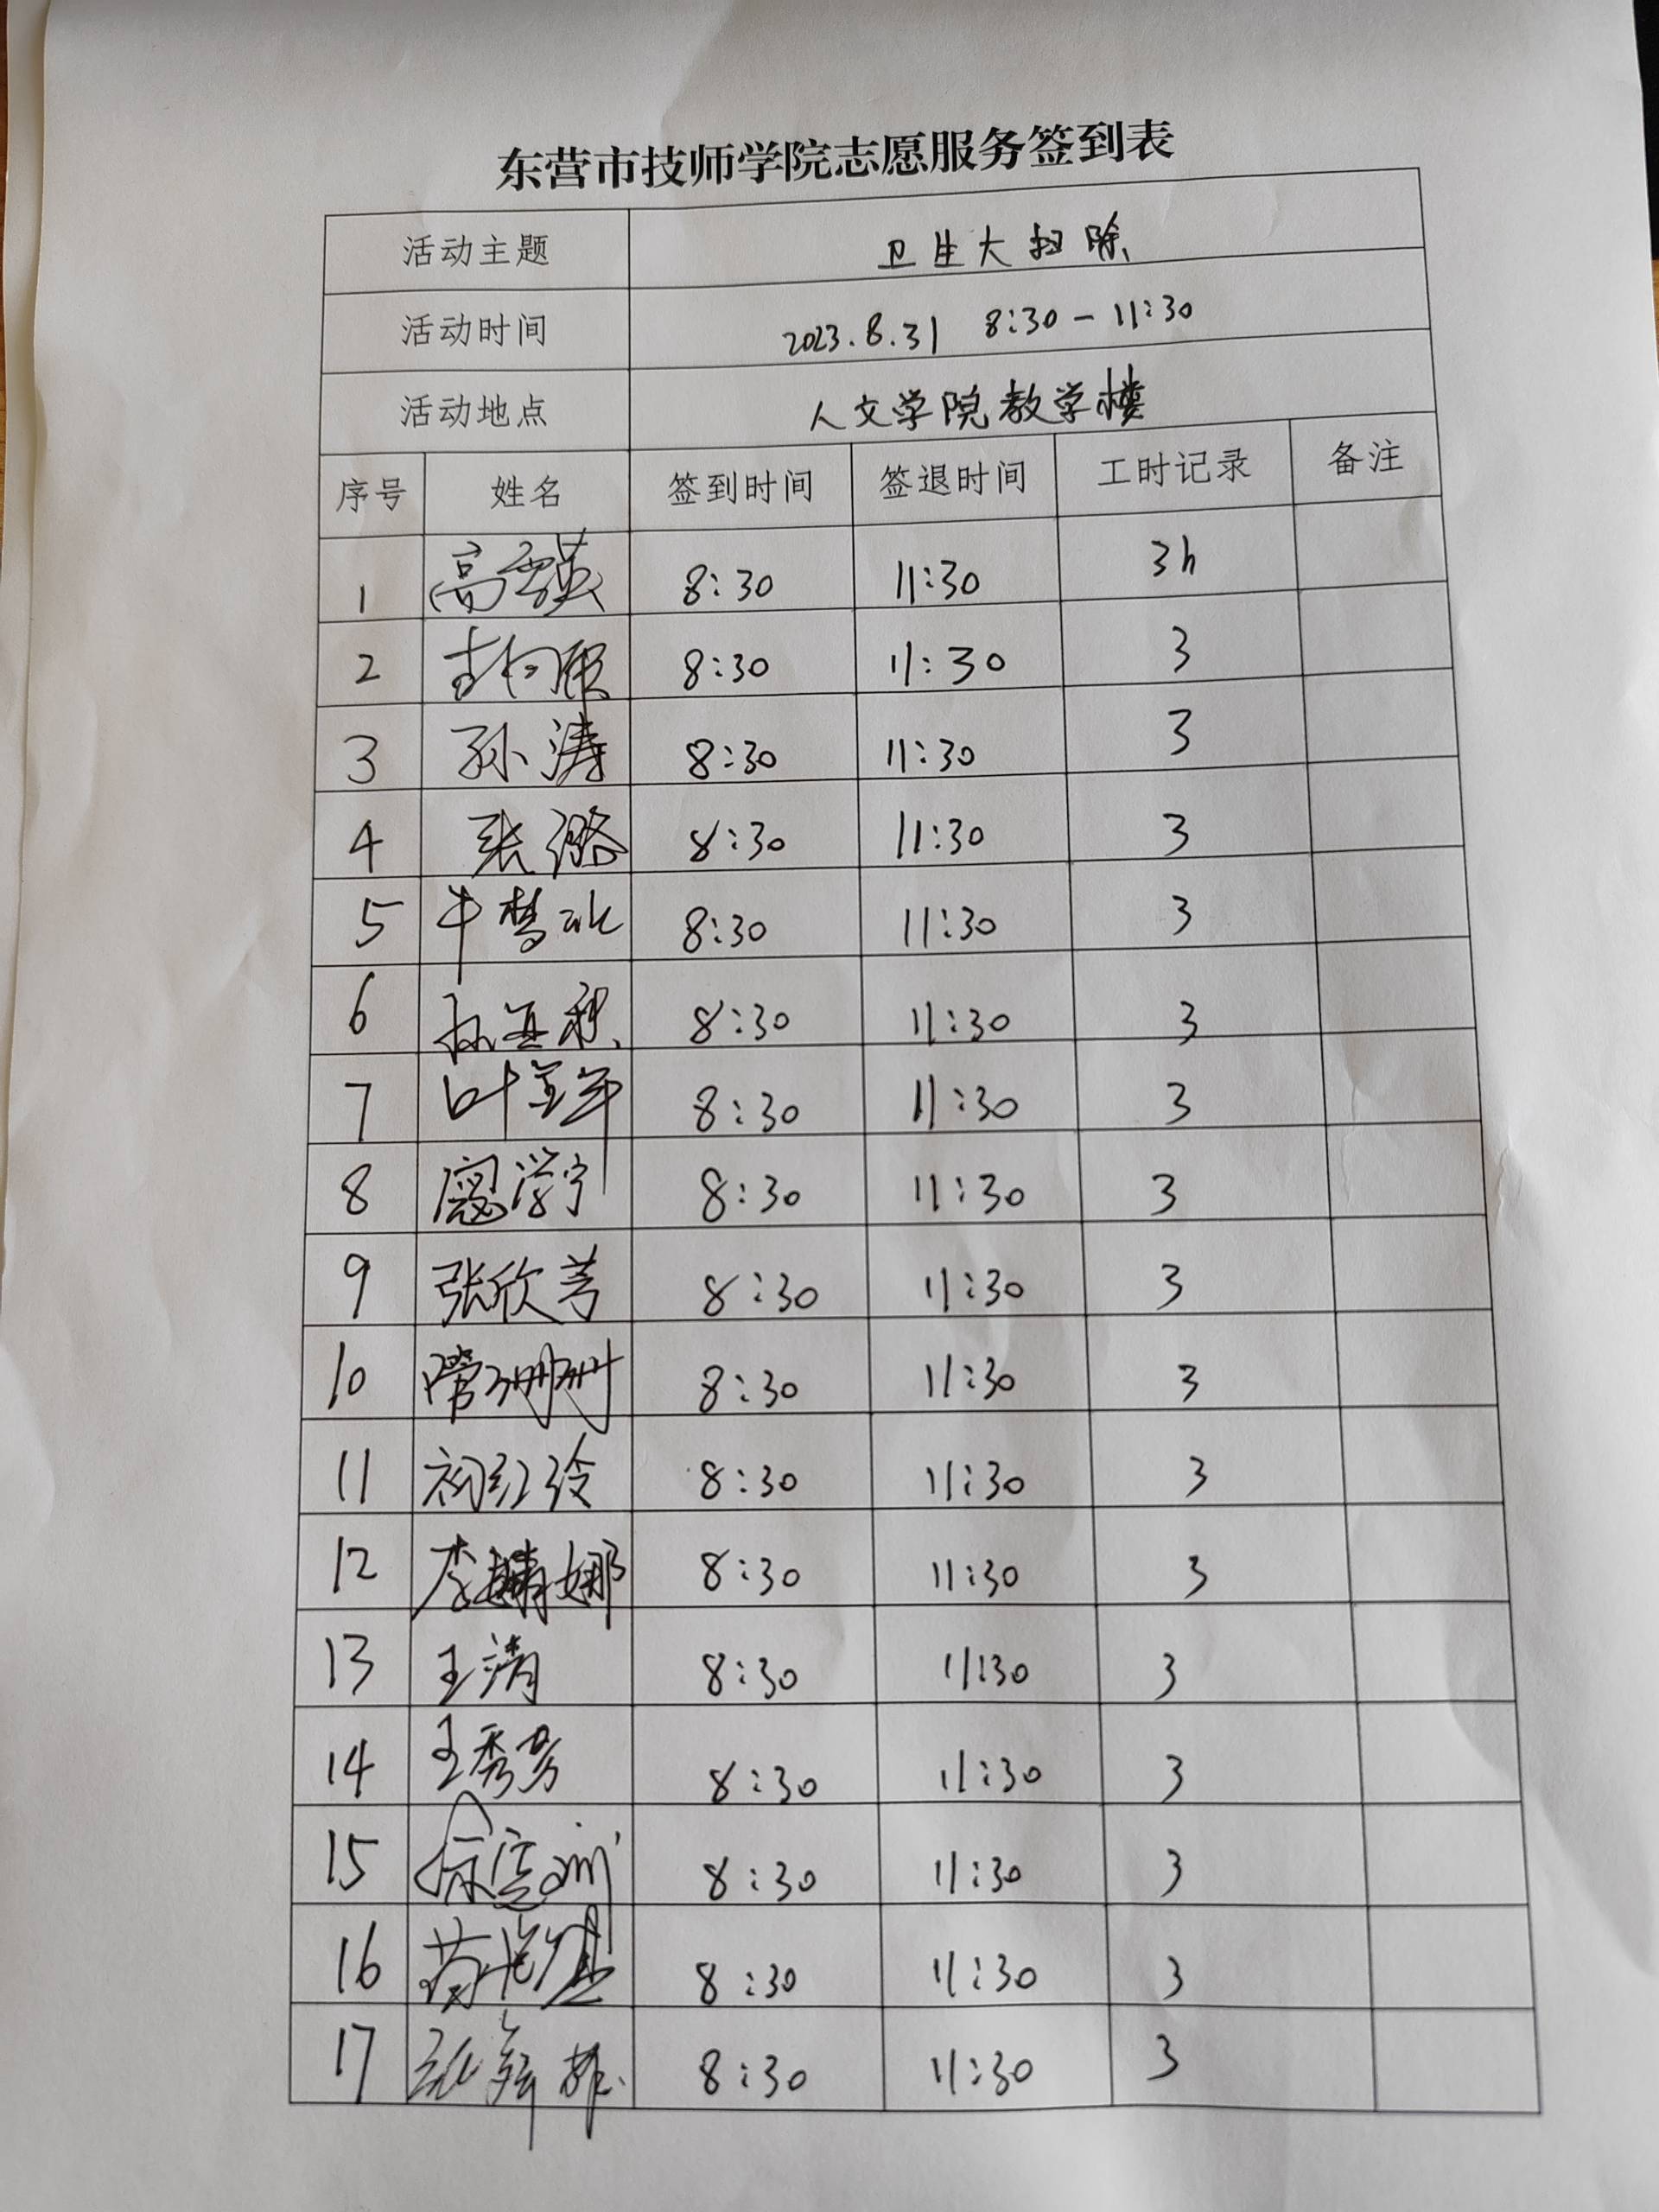 东营市技师学院志愿服务签到表
活动主题 卫生大扫除
活动时间 2023.8.31 8:30-11:30
活动地点 人文学院教学楼
序号 姓名 签到时间 签退时间 工时记录 备注
1 高雪英 8:30 11:30 3h
2 8:30 11:30 3
3 孙涛 8:30 11:30 3
4 张潞 8:30 11:30 3
5 牛梦冰 8:30 11:30 3
6 8:30 11:30 3
7 8:30 11:30 3
8 8:30 11:30 3
9 张欣芳 8:30 11:30 3
10 常珊珊 8:30 11:30 3
11 初红玲 8:30 11:30 3
12 李婧娜 8:30 11:30 3
13 王清 8:30 11:30 3
14 王秀芳 8:30 11:30 3
15 8:30 11:30 3
16 8:30 11:30 3
17 8:30 11:30 3